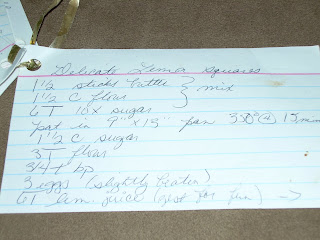 Delicate Lemon Squares
1 1/2 sticks butter } mix
1 1/2 C flour
6 T 10x sugar
pat in 9" x 13" pan 350° @ 15 min
1 1/2 C sugar
3 T flour
3/4 t bp
3 eggs (slightly beaten)
6T lem. juice (zest for fun) →